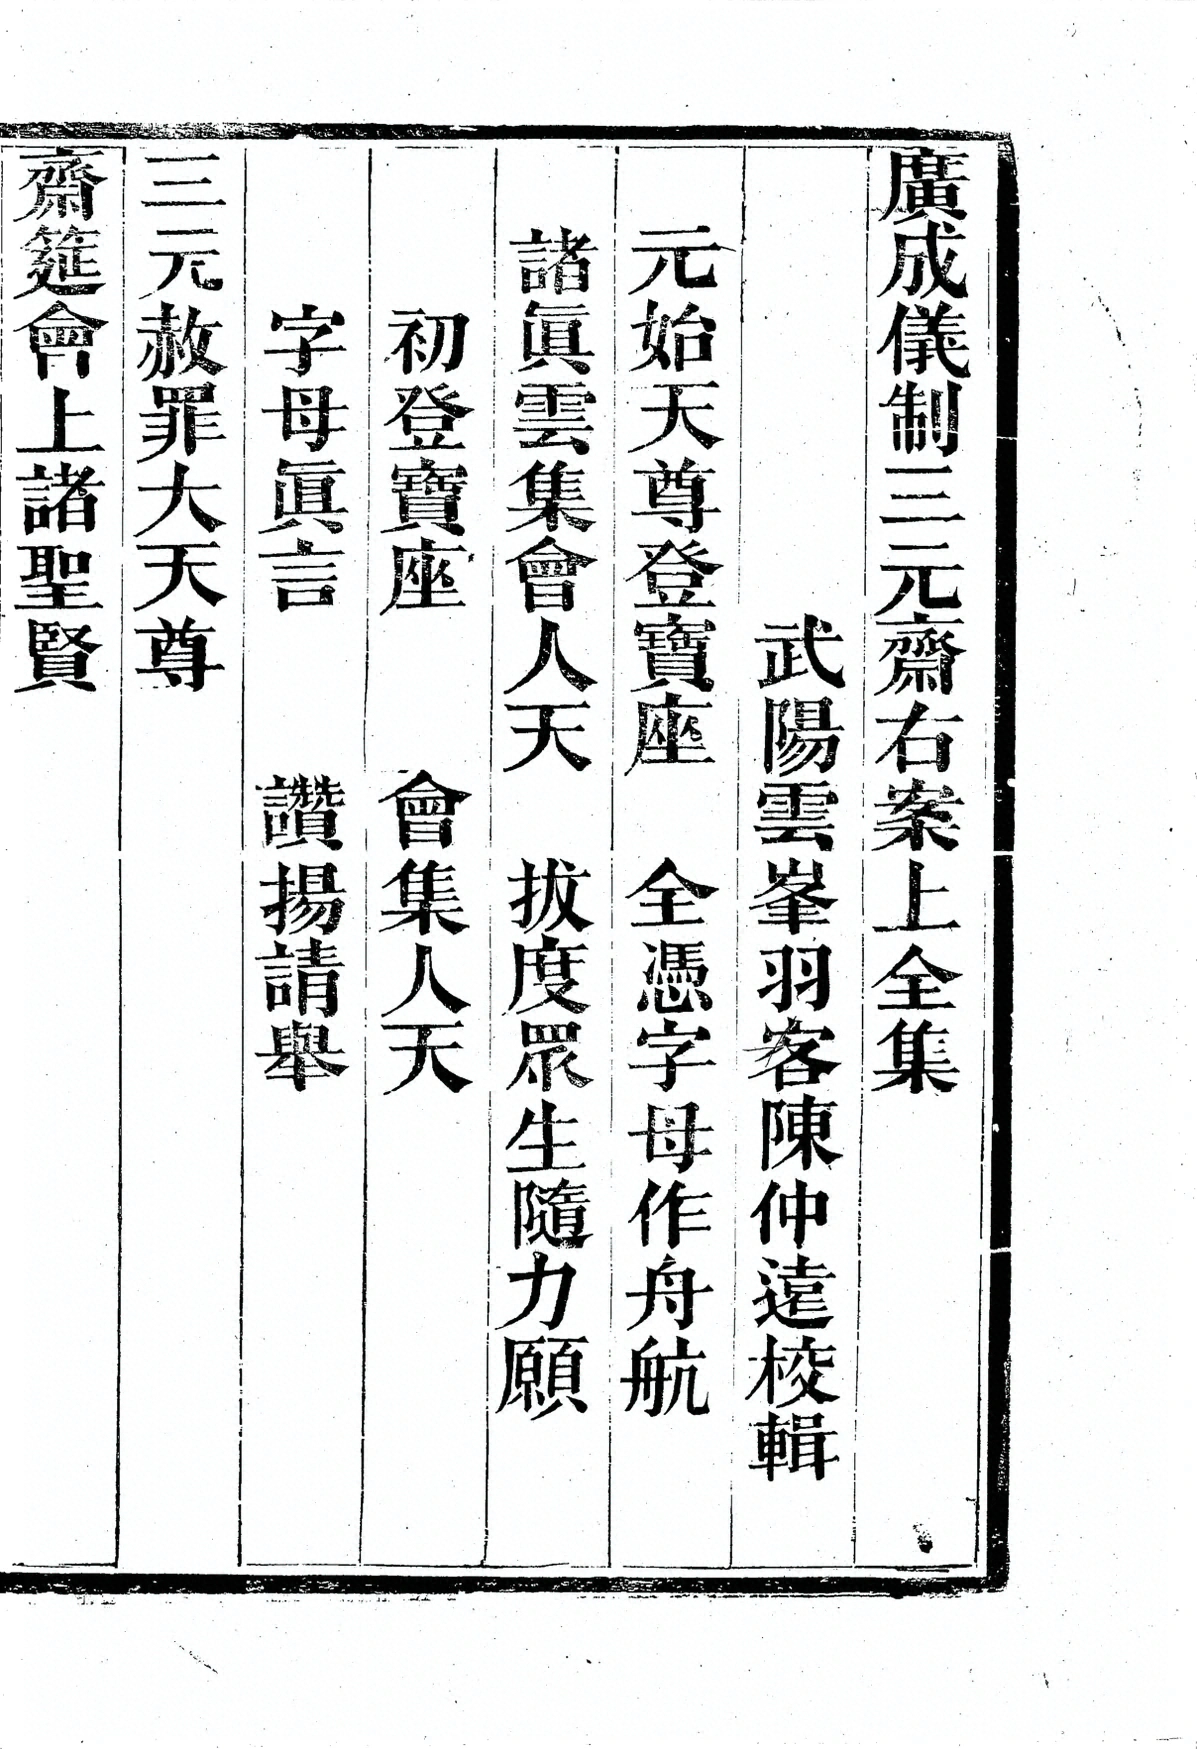 廣成儀制三元齋右案上全集
武陽雲峯羽客陳仲遠校輯
元始天尊登寶座　全憑字母作舟航
諸眞雲集會人天　拔度眾生隨力願
初登寶座　會集人天
字母眞言　讚揚請舉
三元赦罪大天尊
齋筵會上諸聖賢